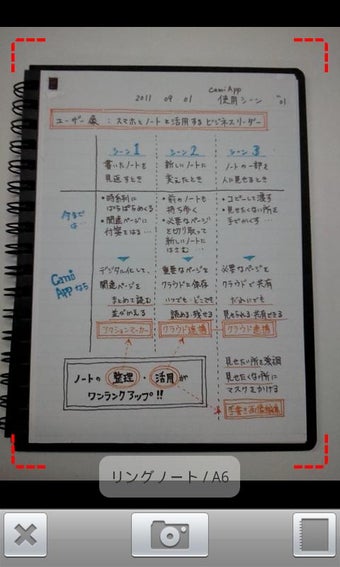 CamiApp
2011 09 01 使用シーン "01
ユーザー像:スマホとノートを活用するビジネスリーダー
シーン1
書いたノートを
見返すとき
シーン2
新しいノートに
変えたとき
シーン3
ノートの一部を
人に見せるとき
今までは
・時系列に
ぱらぱらめくる
・関連ページに
付箋をはる…
・前のノートも
持ち歩く
・必要なページ
を切り取って
新しいノートに
はさむ…
・コピーして渡す
・見せたくない所を
手でかくす…
CamiAppなら
デジタル化して、
関連ページを
まとめて読む
並びかえる
アクションマーカー
重要なページを
クラウドに保存
いつでも どこでも
読める・残せる
クラウド連携
必要なページを
クラウドで共有
だれにでも
見せられる・共有できる
クラウド連携
見せたい所を強調
見せたくない所に
マスクをかける
手書き画像編集
ノートの 整理・活用が
ワンランクアップ!!
リングノート / A6